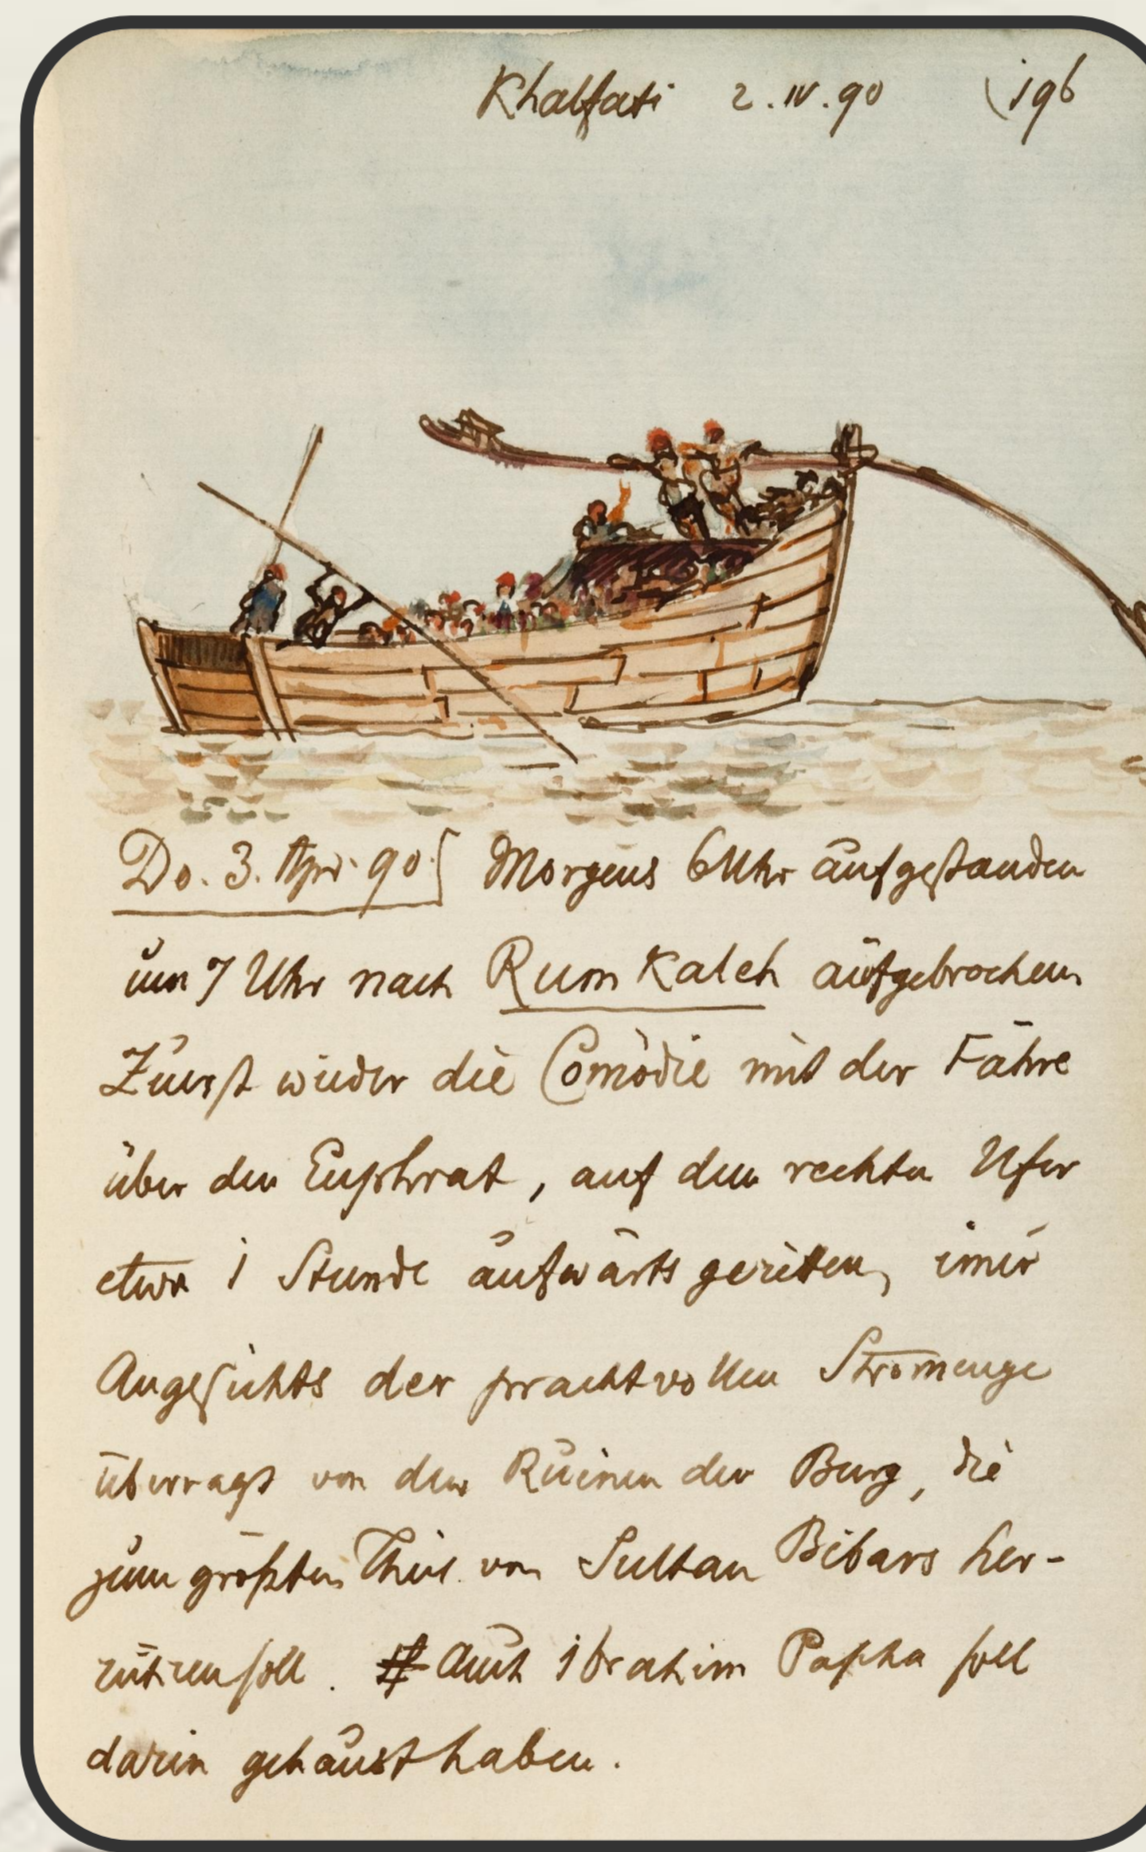 Khalfati 2.IV.90 (196
Do. 3. Apr. 90. Morgens 6 Uhr aufgestanden
um 7 Uhr nach Rum Kaleh aufgebrochen
Zuerst wieder die Comödie mit der Fähre
über den Euphrat, auf dem rechten Ufer
etwa 1 Stunde aufwärts geritten, im̅er
Angesichts der prachtvollen Strom̅enge
überragt von den Ruinen der Burg, die
zum größten Theil von Sultan Bibars her-
rühren soll. Auch Ibrahim Pascha soll
darin gehaust haben.